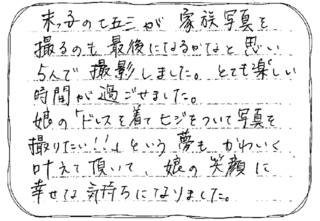 末っ子の七五三が 家族写真を
撮るのも最後になるかなと思い
5人で撮影しました。とても楽しい
時間が過ごせました。
娘の「ドレスを着てヒジをついて写真を
撮りたい!!」という夢も かわいく
叶えて頂いて、娘の笑顔に
幸せな気持ちになりました。